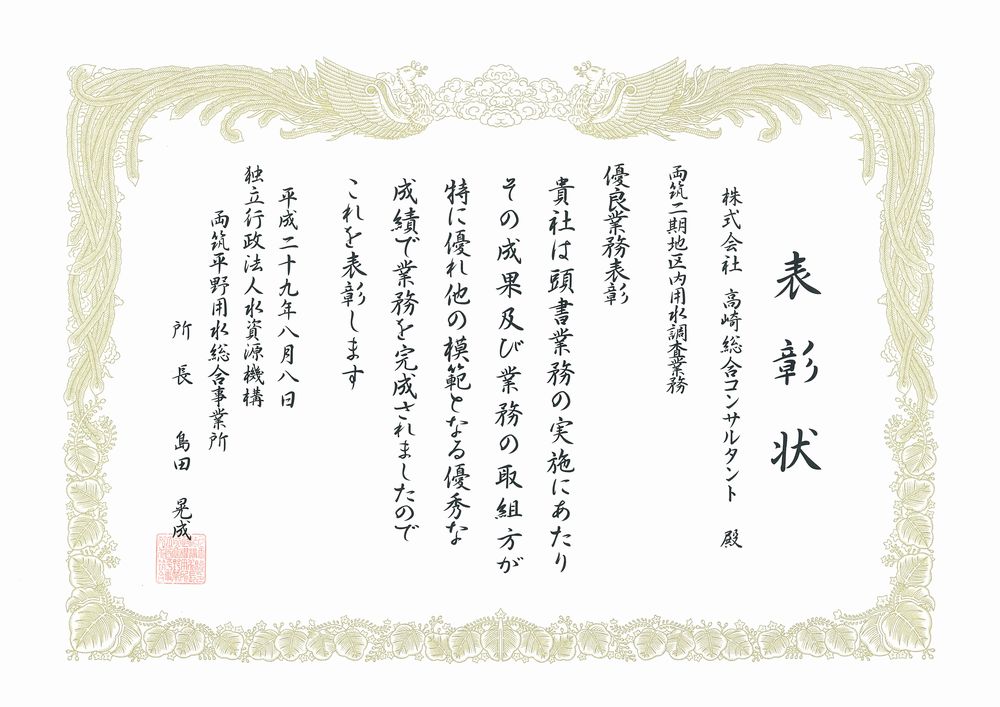 表彰状
株式会社 高崎総合コンサルタント 殿
両筑二期地区内用水調査業務
優良業務表彰
貴社は頭書業務の実施にあたり
その成果及び業務の取組方が
特に優れ他の模範となる優秀な
成績で業務を完成されましたので
これを表彰します
平成二十九年八月八日
独立行政法人水資源機構
両筑平野用水総合事業所
所長 島田 晃成